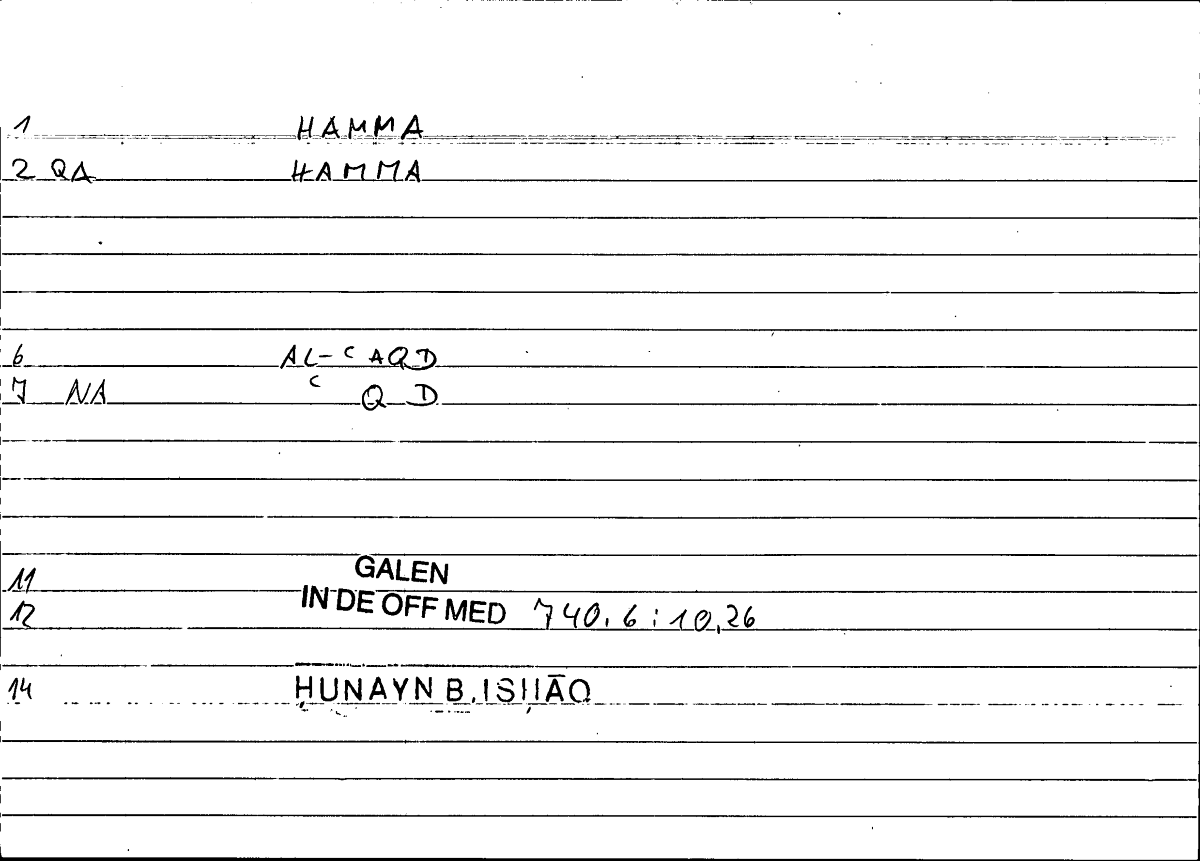 1 HAMMA
2 QA HAMMA
6 AL-ʿAQD
7 NA ʿ Q D
11 GALEN
12 IN DE OFF MED 740.6:10,26
14 ḤUNAYN B.ISḤĀQ